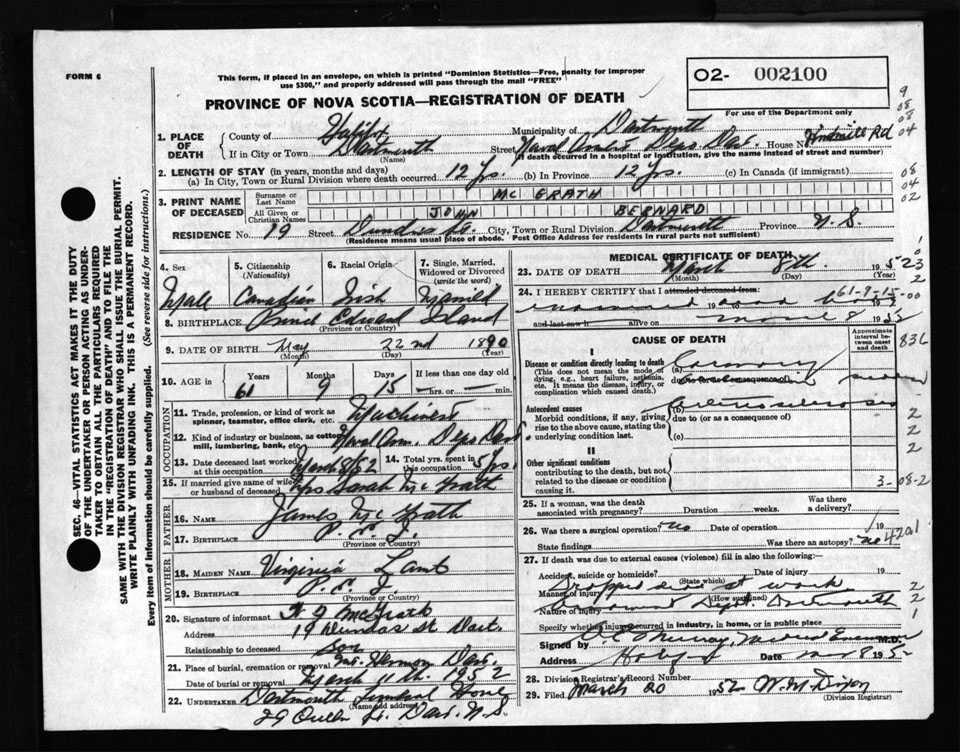 FORM 6
This form, if placed in an envelope, on which is printed "Dominion Statistics—Free, penalty for improper
use $300," and properly addressed will pass through the mail "FREE"
O2- 002100
For use of the Department only
PROVINCE OF NOVA SCOTIA—REGISTRATION OF DEATH
9
08
08
04
1. PLACE OF DEATH
County of Halifax Municipality of Dartmouth
If in City or Town Dartmouth Street Naval Depo Dart. House No. Windmill Rd
(Name) (If death occurred in a hospital or institution, give the name instead of street and number)
2. LENGTH OF STAY (in years, months and days)
(a) In City, Town or Rural Division where death occurred 12 Yrs. (b) In Province 12 Yrs. (c) In Canada (if immigrant)
08
04
02
3. PRINT NAME OF DECEASED
Surname or Last Name MC GRATH
All Given or Christian Names JOHN BERNARD
RESIDENCE No. 19 Street Dundas St. City, Town or Rural Division Dartmouth Province N.S.
(Residence means usual place of abode. Post Office Address for residents in rural parts not sufficient)
4. Sex
Male
5. Citizenship
(Nationality)
Canadian
6. Racial Origin
Irish
7. Single, Married,
Widowed or Divorced
(write the word)
Married
8. BIRTHPLACE Prince Edward Island
(Province or Country)
9. DATE OF BIRTH May 22nd 1890
(Month) (Day) (Year)
10. AGE in
Years Months Days If less than one day old
61 9 15 hrs. or min.
OCCUPATION
11. Trade, profession, or kind of work as
spinner, teamster, office clerk, etc. Machinist
12. Kind of industry or business, as cotton
mill, lumbering, bank, etc. Naval Depo Dart.
13. Date deceased last worked
at this occupation March 8/52
14. Total yrs. spent in
this occupation 5 Yrs.
15. If married give name of wife
or husband of deceased Mrs Sarah McGrath
FATHER
16. NAME James McGrath
17. BIRTHPLACE P.E.I.
(Province or Country)
MOTHER
18. MAIDEN NAME Virginia Lamb
19. BIRTHPLACE P.E.I.
(Province or Country)
20. Signature of informant McGrath
Address 19 Dundas St. Dart.
Relationship to deceased son
21. Place of burial, cremation or removal Mt. Hermon Dart.
Date of burial or removal March 11th. 1952
22. UNDERTAKER Dartmouth Funeral Home
(Name and address)
29 Queen St. Dart. N.S.
MEDICAL CERTIFICATE OF DEATH
23. DATE OF DEATH March 8th. 1952
(Month) (Day) (Year)
24. I HEREBY CERTIFY that I attended deceased from:
61-9-15-00
and last saw h alive on March 8 1952
CAUSE OF DEATH
Approximate interval between onset and death
836
I
Disease or condition directly leading to death
(This does not mean the mode of
dying, e.g., heart failure, asthenia,
etc. It means the disease, injury, or
complication which caused death.)
(a) Coronary sudden
due to (or as a consequence of)
Antecedent causes
Morbid conditions, if any, giving
rise to the above cause, stating the
underlying condition last.
(b) Arteriosclerosis
due to (or as a consequence of)
(c)
II
Other significant conditions
contributing to the death, but not
related to the disease or condition
causing it.
3-08-2
25. If a woman, was the death
associated with pregnancy? Duration weeks. Was there a delivery?
26. Was there a surgical operation? no Date of operation 19
State findings Was there an autopsy? no
4201
27. If death was due to external causes (violence) fill in also the following:—
Accident, suicide or homicide? Date of injury 19
(State which)
Manner of injury Dropped dead at work
(How sustained)
Nature of injury Dept. Dartmouth
Specify whether injury occurred in industry, in home, or in public place
Signed by Murray, Medical Examiner M.D.
Address Halifax Date Mar 8 195
28. Division Registrar's Record Number
29. Filed March 20 1952 W.M. Dixon
(Division Registrar)
SEC. 46—VITAL STATISTICS ACT MAKES IT THE DUTY
OF THE UNDERTAKER OR PERSON ACTING AS UNDER-
TAKER TO OBTAIN ALL THE PARTICULARS REQUIRED
IN THE "REGISTRATION OF DEATH" AND TO FILE THE
SAME WITH THE DIVISION REGISTRAR WHO SHALL ISSUE THE BURIAL PERMIT.
WRITE PLAINLY WITH UNFADING INK. THIS IS A PERMANENT RECORD.
Every item of information should be carefully supplied. (See reverse side for instructions.)